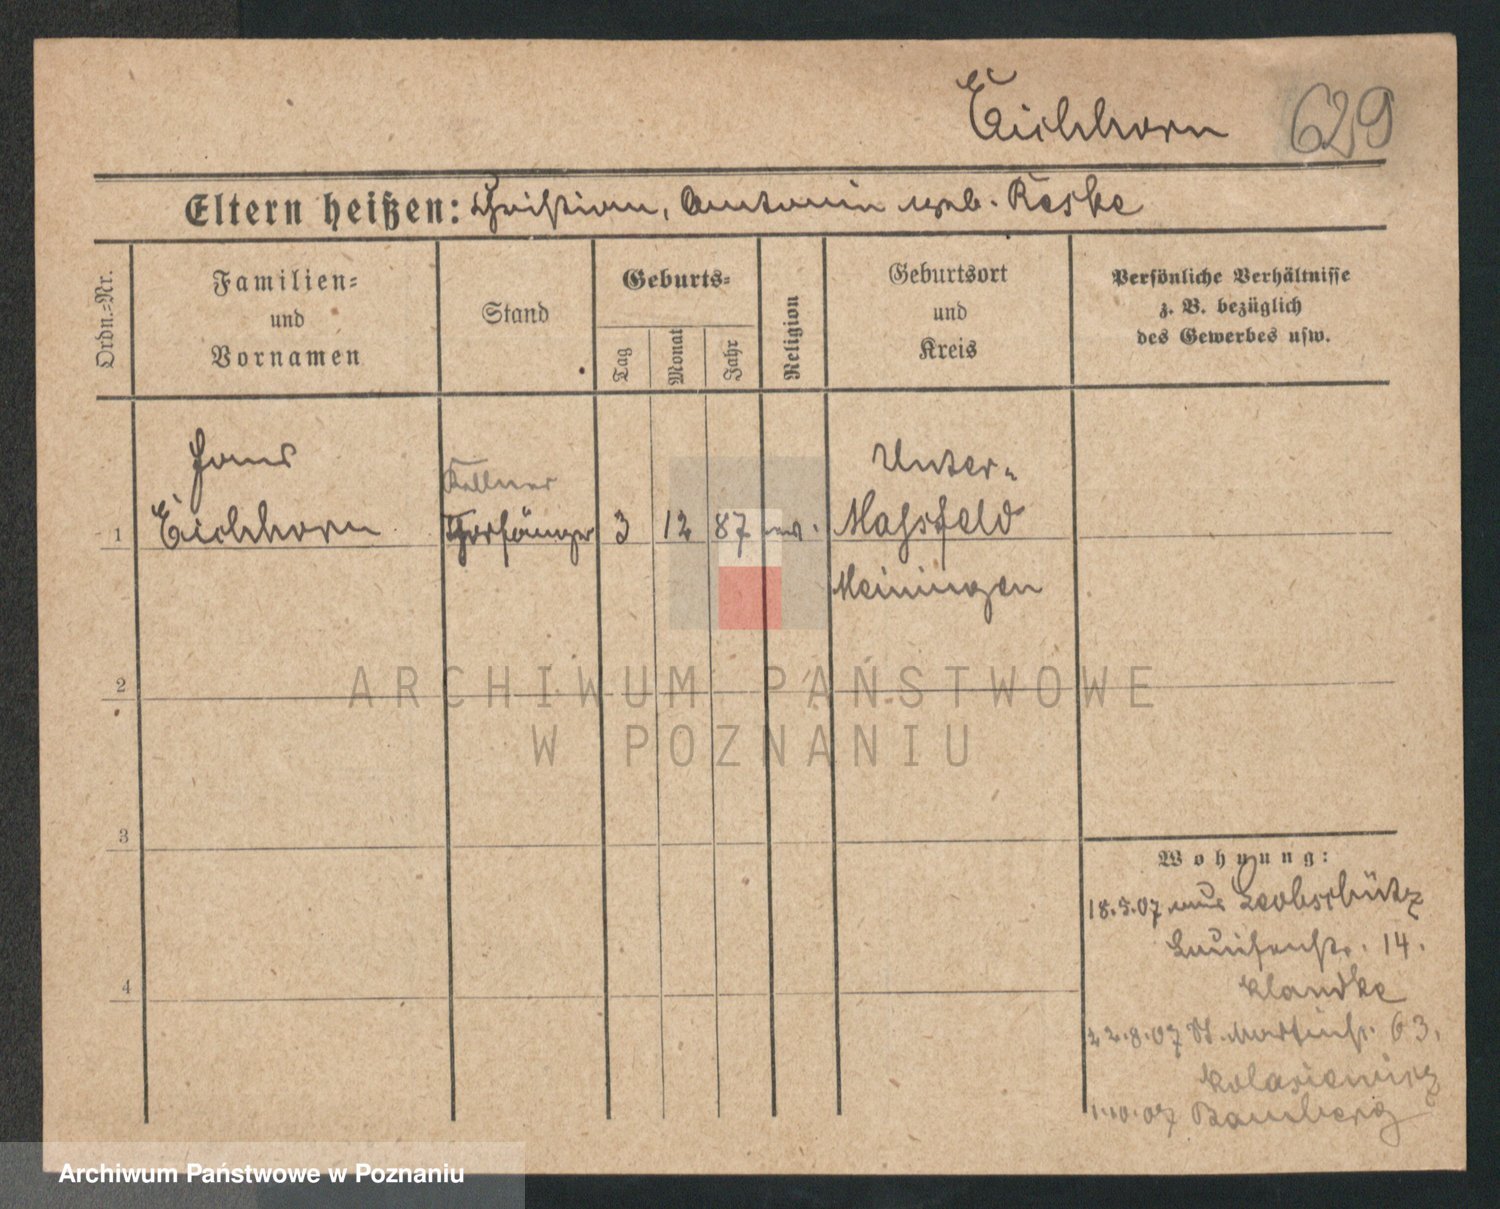 Eichhorn 629
Eltern heißen: Christian, Antonin geb. Keske
Ordn.=Nr.
Familien=
und
Vornamen
Stand
Geburts=
Tag
Monat
Jahr
Religion
Geburtsort
und
Kreis
Persönliche Verhältnisse
z. B. bezüglich
des Gewerbes usw.
Hans
Eichhorn
Kellner
1
3 12 87
Unter-
Maßfeld
Meiningen
2
3
4
Wohnung:
18.5.07 aus Leobschütz
Luisenstr. 14.
Klandke
22.8.07 St. Martinstr. 63.
1.10.07 Bamberg
ARCHIWUM PAŃSTWOWE
W POZNANIU
Archiwum Państwowe w Poznaniu